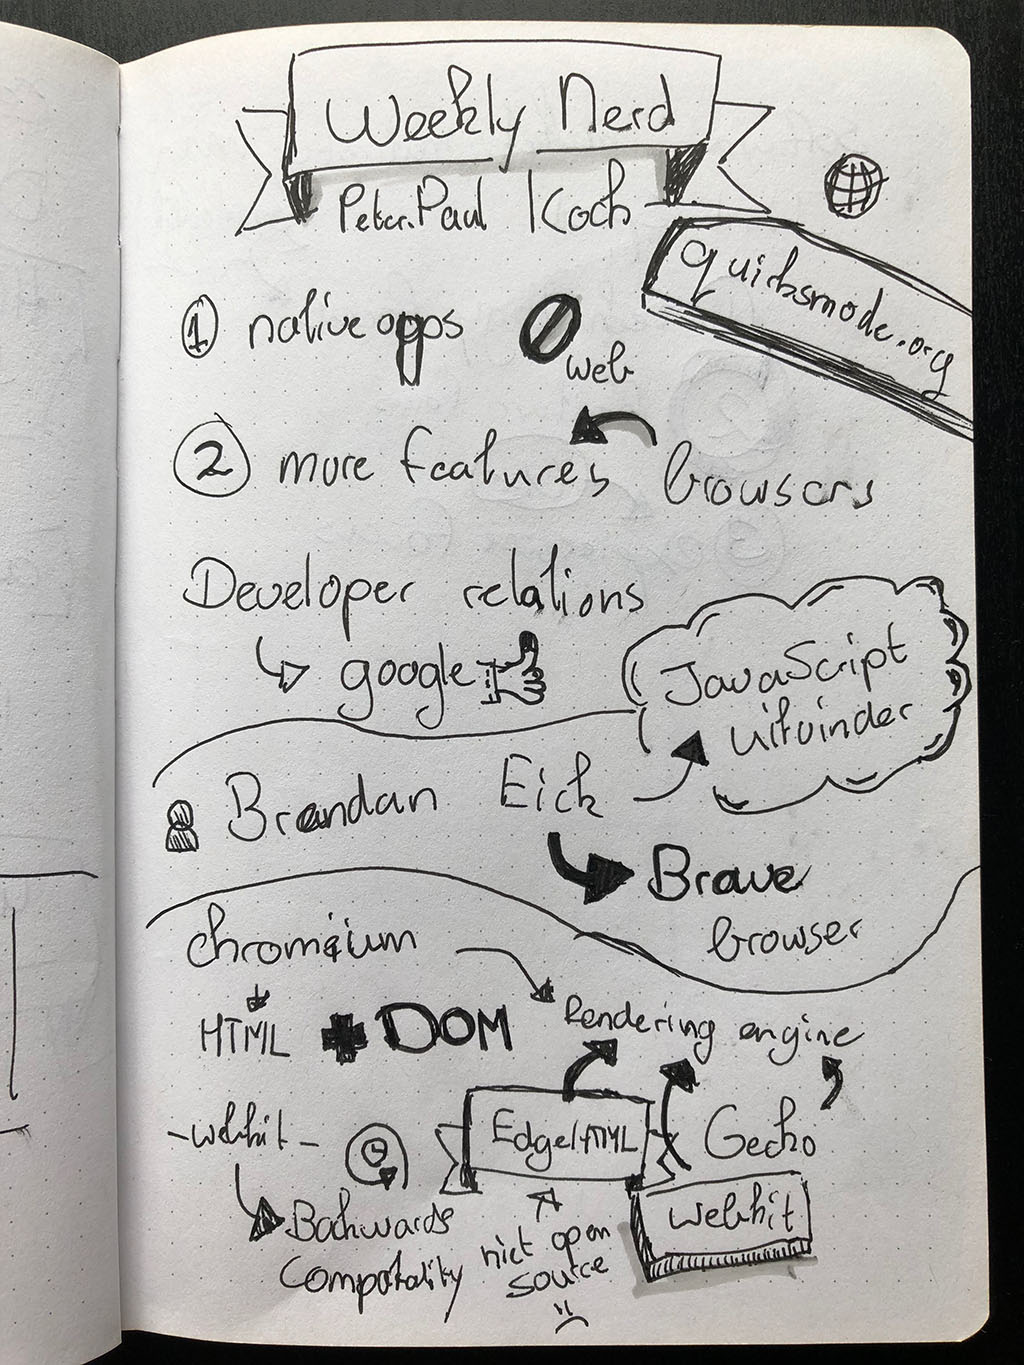 Weekly Nerd
Peter.Paul Koch
quirksmode.org
1 native apps
web
2 more features browsers
Developer relations
google
JavaScript
uitvinder
Brendan Eick
Brave
browser
chromium
HTML + DOM
Rendering engine
-webkit-
EdgeHTML
Gecko
webkit
Backwards
Compatality
niet open
source